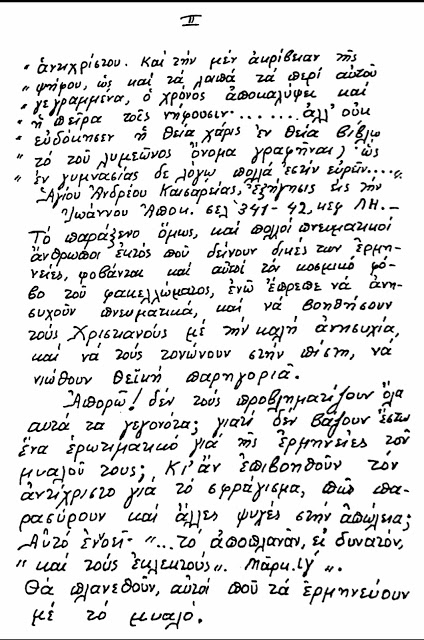 II
" ἀντιχρίστου. Καί τήν μέν ἀκρίβειαν τῆς
" ψήφου, ὡς καί τά λοιπά τά περί αὐτοῦ
" γεγραμμένα, ὁ χρόνος ἀποκαλύψει καί
" ἡ πεῖρα τοῖς νήφουσιν....... ἀλλ' οὐκ
" εὐδόκησεν ἡ Θεία χάρις ἐν θεία βίβλω
" τό τοῦ λυμεῶνος ὄνομα γραφῆναι, ὡς
" ἐν γυμνασίας δε λόγω πολλά ἐστίν εὑρεῖν....".
Ἁγίου Ἀνδρέου Καισαρείας, Ἐξήγησις εἰς τήν
Ἰωάννου Ἀποκ. σελ 341-42, κεφ ΛΗ. —
Τό παράξενο ὅμως, καί πολλοί πνευματικοί
ἄνθρωποι ἐκτός πού δείνουν δικές των ἑρμη-
νείες, φοβάνται καί αὐτοί τόν κοσμικό φό-
βο τοῦ φακελλώματος, ἐνῶ ἔπρεπε νά ἀνη-
συχοῦν πνευματικά, καί νά βοηθήσουν
τούς Χριστιανούς μέ τήν καλή ἀνησυχία,
καί νά τούς τονώνουν στήν πίστη, νά
νιώθουν θεϊκή παρηγοριά.
Ἀπορῶ! δέν τούς προβληματίζουν ὅλα
αυτά τα γεγονότα; γιατί δέν βάζουν ἔστω
ἕνα ἐρωτιματικό γιά τῆς ἑρμηνείες τοῦ
μυαλοῦ τους; Κι' ἄν ἐπιβοηθοῦν τόν
ἀντίχριστο γιά τό σφράγισμα, πῶς πα-
ρασύρουν καί ἄλλες ψυχές στήν ἀπώλεια;
Αὐτό ἐννοεῖ "...τό ἀποπλανᾶν, εἰ δυνατόν,
" καί τούς ἐκλεκτούς". Μάρκ. ιγ΄ ".
Θά πλανεθοῦν, αὐτοί πού τά ἑρμηνεύουν
μέ τό μυαλό.